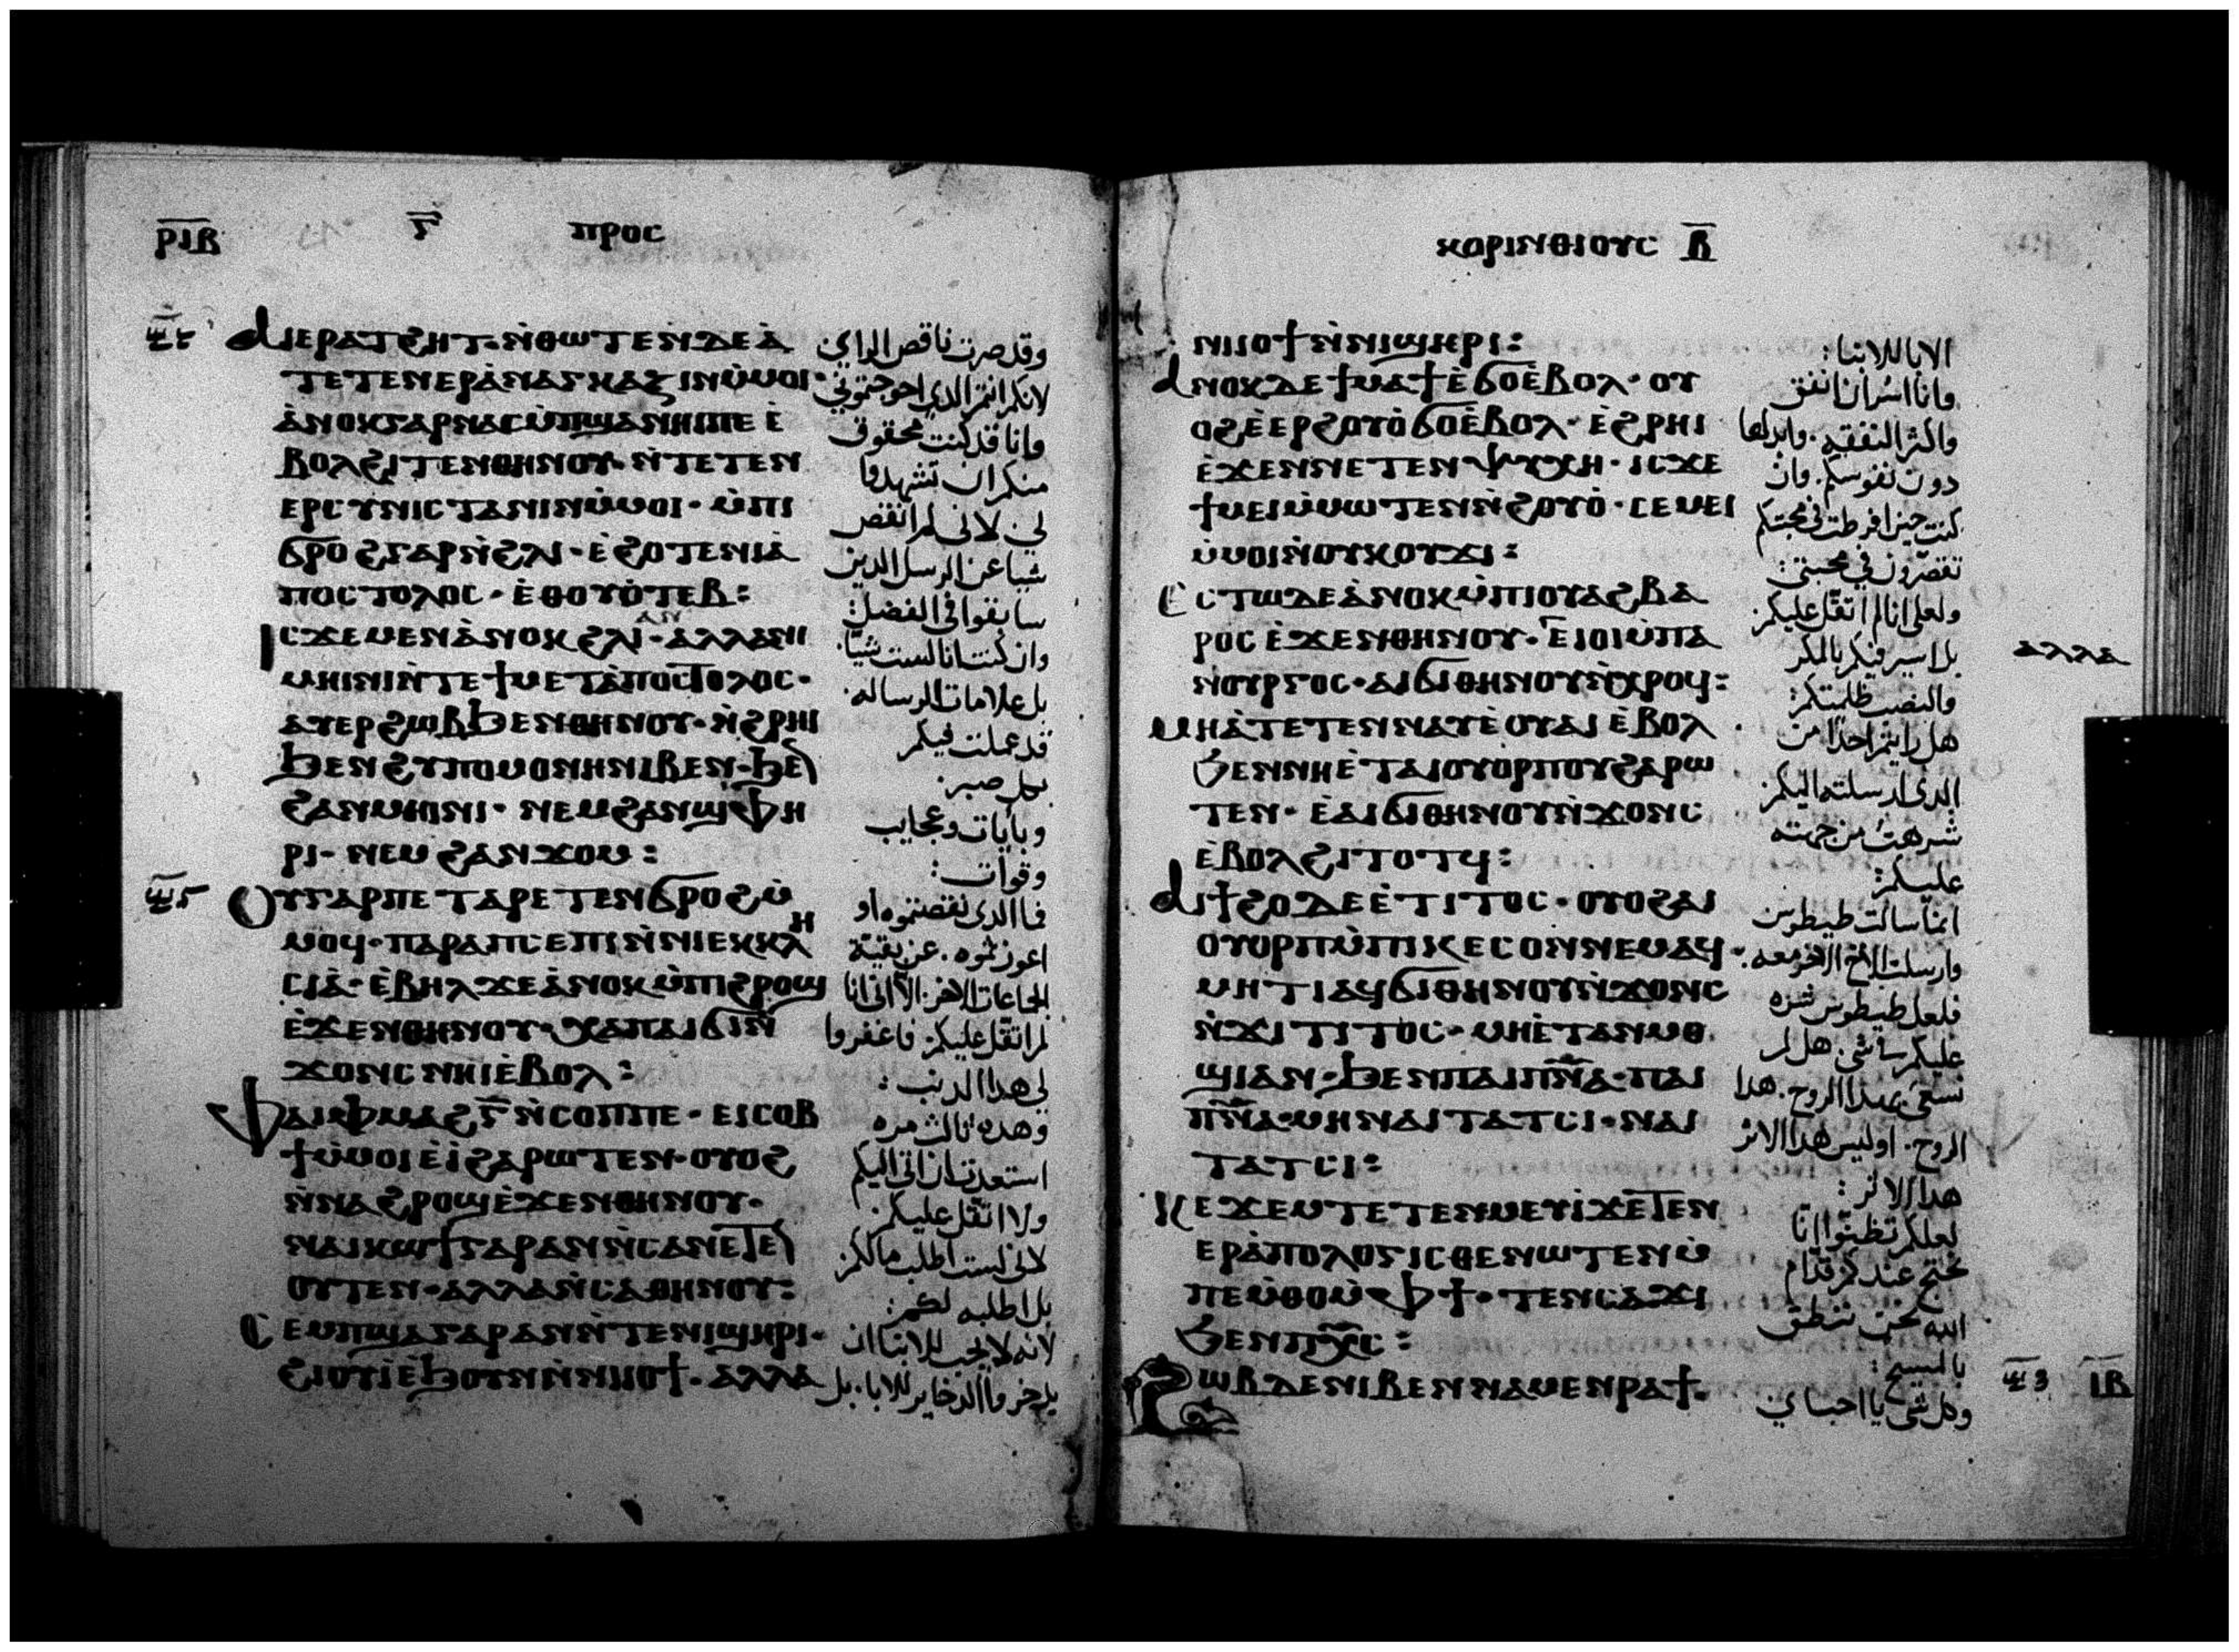 ⲣⲓⲃ ⲅ ⲡⲣⲟⲥ
ⲁⲓⲉⲣⲁⲧϩⲏⲧ· ⲛ̀ⲑⲱⲧⲉⲛ ⲇⲉ ⲁ̀
ⲧⲉⲧⲉⲛⲉⲣⲁ̀ⲛⲁⲅⲕⲁⲍⲓⲛ ⲙ̀ⲙⲟⲓ·
ⲁ̀ⲛⲟⲕ ⲅⲁⲣ ⲛⲁⲥⲙ̀ⲡϣⲁ ⲛⲏⲓ ⲡⲉ ⲉ̀
ⲃⲟⲗϩⲓⲧⲉⲛ ⲑⲏⲛⲟⲩ· ⲛ̀ⲧⲉⲧⲉⲛ
ⲉⲣⲥⲩⲛⲓⲥⲧⲁⲛⲓⲛ ⲙ̀ⲙⲟⲓ· ⲙ̀ⲡⲓ
ϭⲣⲟϩ ⲅⲁⲣ ⲛ̀ϩⲗⲓ· ⲉ̀ϩⲟⲧⲉ ⲛⲓⲁ̀
ⲡⲟⲥⲧⲟⲗⲟⲥ· ⲉ̀ⲑⲟⲩⲟ̀ⲧⲉⲃ:
ⲓⲥϫⲉ ⲙⲉⲛ ⲁ̀ⲛⲟⲕ ϩⲗⲓ ⲁⲛ· ⲁⲗⲗⲁ ⲛⲓ
ⲙⲏⲓⲛⲓ ⲛ̀ⲧⲉ ϯⲙⲉⲧⲁ̀ⲡⲟⲥⲧⲟⲗⲟⲥ·
ⲁⲩⲉⲣϩⲱⲃ ϧⲉⲛ ⲑⲏⲛⲟⲩ· ⲛ̀ϩⲣⲏⲓ
ϧⲉⲛ ϩⲩⲡⲟⲙⲟⲛⲏ ⲛⲓⲃⲉⲛ· ϧⲉⲛ
ϩⲁⲛⲙⲏⲓⲛⲓ· ⲛⲉⲙ ϩⲁⲛϣⲫⲏ
ⲣⲓ· ⲛⲉⲙ ϩⲁⲛϫⲟⲙ:
ⲟⲩ ⲅⲁⲣ ⲡⲉⲧⲁⲣⲉⲧⲉⲛϭⲣⲟϩ ⲙ̀
ⲙⲟϥ· ⲡⲁⲣⲁ ⲡⲥⲉⲡⲓ ⲛ̀ⲛⲓⲉⲕⲕⲗⲏ
ⲥⲓⲁ̀· ⲉ̀ⲃⲏⲗ ϫⲉ ⲁ̀ⲛⲟⲕ ⲙ̀ⲡⲓϩⲣⲟϣ
ⲉ̀ϫⲉⲛ ⲑⲏⲛⲟⲩ· ⲭⲁ ⲡⲁⲓϭⲓⲛ̀
ϫⲟⲛⲥ ⲛⲏⲓ ⲉ̀ⲃⲟⲗ:
ⲫⲁⲓ ⲫⲙⲁϩ ⲅ̄ ⲛ̀ⲥⲟⲡ ⲡⲉ· ⲉⲓⲥⲟⲃ
ϯ ⲙ̀ⲙⲟⲓ ⲉ̀ⲓ̀ ϩⲁⲣⲱⲧⲉⲛ· ⲟⲩⲟϩ
ⲛ̀ⲛⲁϩⲣⲟϣ ⲉ̀ϫⲉⲛ ⲑⲏⲛⲟⲩ·
ⲛⲁⲓⲕⲱϯ ⲅⲁⲣ ⲁⲛ ⲛ̀ⲥⲁ ⲛⲉⲧⲉⲛ
ⲟⲩⲧⲉⲛ· ⲁⲗⲗⲁ ⲛ̀ⲥⲁ ⲑⲏⲛⲟⲩ:
ⲥⲉⲙⲡϣⲁ ⲅⲁⲣ ⲁⲛ ⲛ̀ⲧⲉ ⲛⲓϣⲏⲣⲓ·
ϩⲓⲟⲩⲓ̀ ⲉ̀ϧⲟⲩⲛ ⲛ̀ⲛⲓⲓⲟϯ· ⲁⲗⲗⲁ
وقد صرت ناقص الراي
لانكم انتم الذي احوجتموني
وانا قد كنت محقوق
منكم ان تشهدوا
لي لاني لم انقص
شيا عن الرسل الدين
سابقوا في الفضل:
وان كنت انا لست شيا.
بل علامات الرساله.
قد عملت فيكم
بكل صبر.
وبايات وعجايب
وقوات:
فما الدى نقصتموه او
اعوزتموه. عن بقية
الجماعات الاخر الا انى انا
لم اتقل عليكم. فاغفروا
لي هدا الدنب:
وهده ثالث مره
استعددت ان اتى اليكم
ولا اتقل عليكم.
لانى لست اطلب مالكم
بل اطلبه لكم:
لانه لا يجب للابنا ان
يدخروا الدخاير للابا. بل
ⲕⲟⲣⲓⲛⲑⲓⲟⲩⲥ ⲃ̄
ⲛⲓⲓⲟϯ ⲛ̀ⲛⲓϣⲏⲣⲓ:
ⲁⲛⲟⲕ ⲇⲉ ϯⲙⲁϯ ⲉ̀ϭⲟ ⲉ̀ⲃⲟⲗ· ⲟⲩ
ⲟϩ ⲉ̀ⲉⲣϩⲟⲩⲟ̀ ϭⲟ ⲉ̀ⲃⲟⲗ· ⲉ̀ϩⲣⲏⲓ
ⲉ̀ϫⲉⲛ ⲛⲉⲧⲉⲛⲯⲩⲭⲏ· ⲓⲥϫⲉ
ϯⲙⲉⲓ ⲙ̀ⲙⲱⲧⲉⲛ ⲛ̀ϩⲟⲩⲟ̀· ⲥⲉⲙⲉⲓ
ⲙ̀ⲙⲟⲓ ⲛ̀ⲟⲩⲕⲟⲩϫⲓ:
ⲉⲥⲧⲱ ⲇⲉ ⲁ̀ⲛⲟⲕ ⲙ̀ⲡⲓⲟⲩⲁϩⲃⲁ
ⲣⲟⲥ ⲉ̀ϫⲉⲛ ⲑⲏⲛⲟⲩ· ⲉⲓⲟⲓ ⲙ̀ⲡⲁ
ⲛⲟⲩⲣⲅⲟⲥ· ⲁⲓϭⲓ ⲑⲏⲛⲟⲩ ⲛ̀ⲭⲣⲟϥ:
ⲁⲗⲗⲁ
ⲙⲏ ⲁ̀ⲧⲉⲧⲉⲛⲛⲁⲩ ⲉ̀ⲟⲩⲁⲓ ⲉ̀ⲃⲟⲗ
ϧⲉⲛ ⲛⲏ ⲉ̀ⲧⲁⲓⲟⲩⲟⲣⲡⲟⲩ ϩⲁⲣⲱ
ⲧⲉⲛ· ⲉ̀ⲁⲓϭⲓ ⲑⲏⲛⲟⲩ ⲛ̀ϫⲟⲛⲥ
ⲉ̀ⲃⲟⲗϩⲓⲧⲟⲧϥ:
ⲁⲓϯϩⲟ ⲇⲉ ⲉ̀ⲧⲓⲧⲟⲥ· ⲟⲩⲟϩ ⲁⲓ
ⲟⲩⲟⲣⲡ ⲙ̀ⲡⲓⲕⲉⲥⲟⲛ ⲛⲉⲙⲁϥ·
ⲙⲏⲧⲓ ⲁϥϭⲓ ⲑⲏⲛⲟⲩ ⲛ̀ϫⲟⲛⲥ
ⲛ̀ϫⲓ ⲧⲓⲧⲟⲥ· ⲙⲏ ⲉ̀ⲧⲁⲛⲙⲟ
ϣⲓ ⲁⲛ· ϧⲉⲛ ⲡⲁⲓⲡ̅ⲛ̅ⲁ̅· ⲡⲁⲓ
ⲡ̅ⲛ̅ⲁ̅· ⲙⲏ ⲛⲁⲓⲧⲁⲧⲥⲓ· ⲛⲁⲓ
ⲧⲁⲧⲥⲓ:
ⲕⲉϫⲉⲙ ⲧⲉⲧⲉⲛⲙⲉⲩⲓ̀ ϫⲉ ⲧⲉⲛ
ⲉⲣⲁ̀ⲡⲟⲗⲟⲅⲓⲥⲑⲉ ⲛⲱⲧⲉⲛ ⲙ̀
ⲡⲉⲙⲑⲟ ⲙ̀ⲫϯ· ⲧⲉⲛⲥⲁϫⲓ
ϧⲉⲛ ⲡⲭ̅ⲥ̅:
ϩⲱⲃ ⲇⲉ ⲛⲓⲃⲉⲛ ⲛⲁⲙⲉⲛⲣⲁϯ·
ⲓⲃ
الابا للابنا:
وانا اسر ان انفق
واكثر النفقه. وابدلها
دون نفوسكم. وان
كنت حين افرطت في محبتكم
تقصرون في محبتى:
ولعلى انا لم اتقل عليكم
بل اسير فيكم بالمكر
والنصب ظلمتكم:
هل رايتم احدا من
الدى ارسلته اليكم
شرهت من جهته
عليكم:
انما سالت طيطوس
وارسلت الاخ الاخر معه.
فلعل طيطوس شره
عليكم بشى. هل لم
نسعى بهدا الروح. هدا
الروح. اوليس هدا الاثر
هدا الاثر:
لعلكم تظنوا انا
نحتج عندكم قدام
الله نحن ننطق
بالمسيح:
وكل شى يا احباي